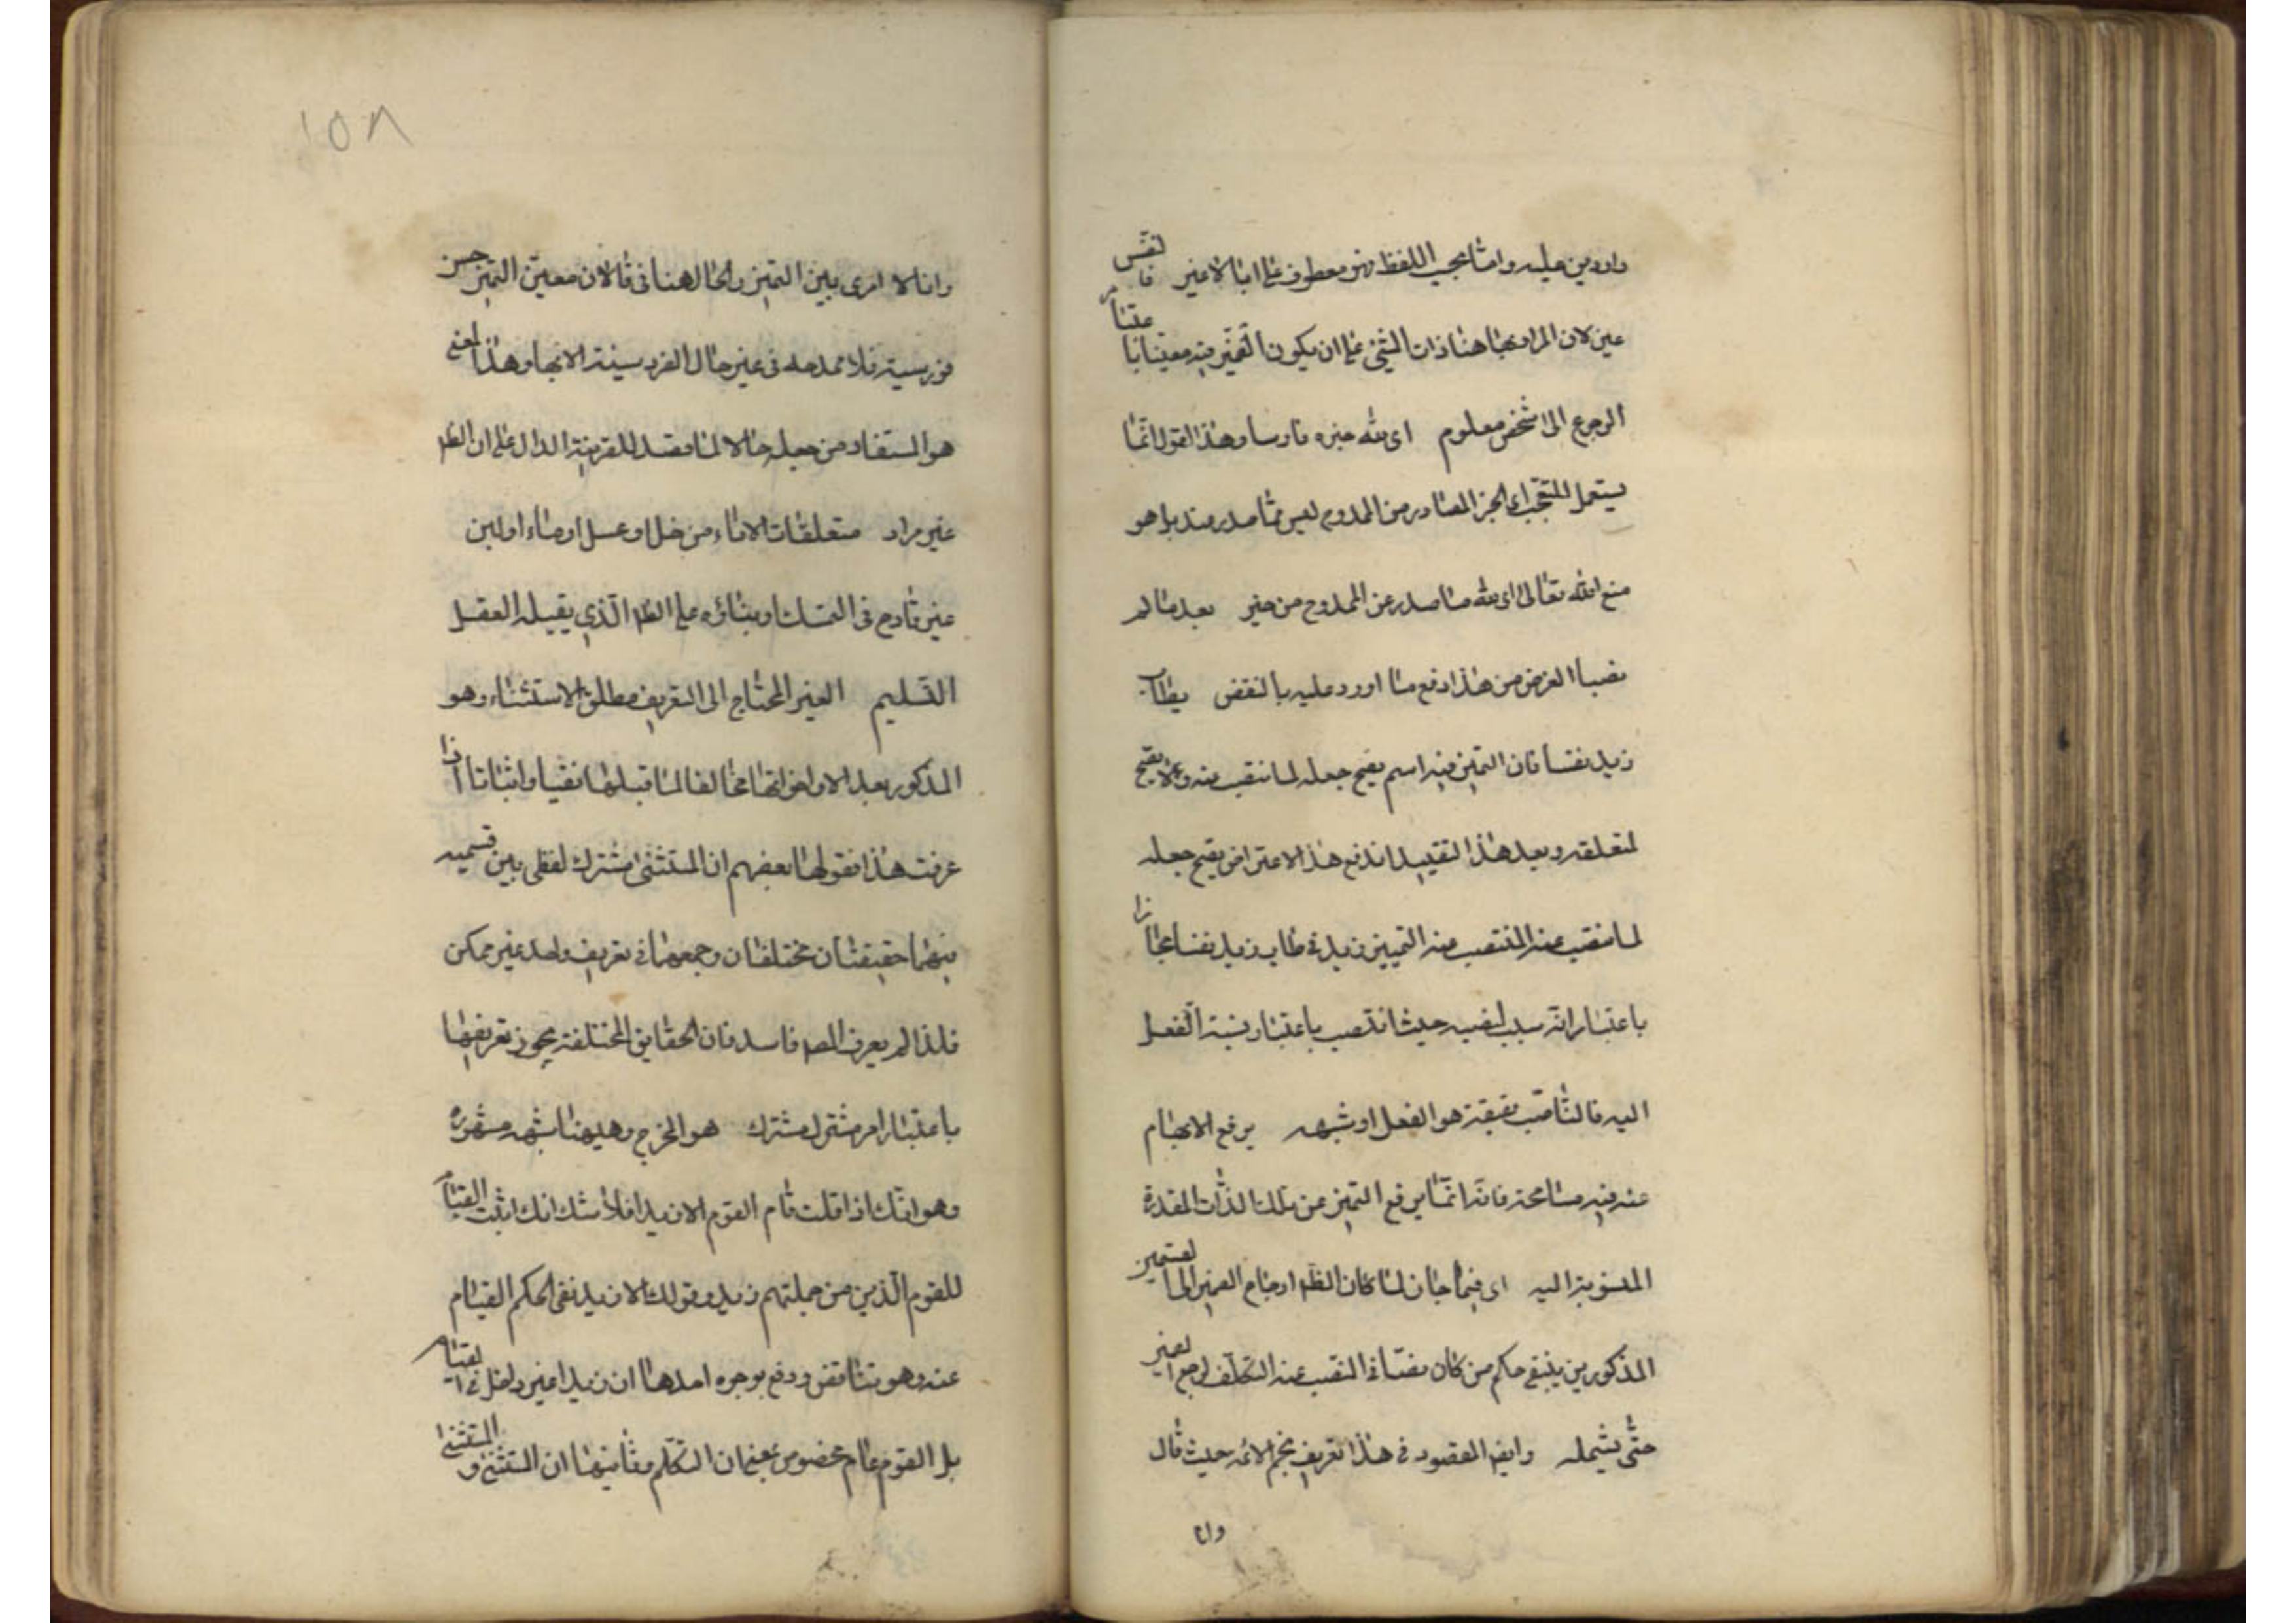 واردين عليه واما بحجب اللفظ فهو معطوف على ابا لا غير فانفس
عين لان المراد بها هنا ذات الشئ على ان يكون التميز فيه معينا باعتبار
الرجوع الى شخص معلوم اى لله خيره فارسا وهذا القول انما
يستعمل للتعجب اى الخير الصادر من الممدوح ليس مما صدر منه بل هو
منع الله تعالى اى لله ما صدر عن الممدوح من خير بعد ما لم
نصبا الغرض من هذا دفع ما اورد عليه بالنقض بطاب
زيد نفسا فان التميز فيه اسم يصح جعله لما انتصب عنه ولا يصح
لمتعلقه وبعد هذا التقييد اندفع هذا الاعتراض يصح جعله
لما انتصب عنه المنتصب عنه التمييز زيد فى طاب زيد نفسا مجازا
باعتبار انه سبب لنصبه حيث انتصب باعتبار نسبة الفعل
اليه فالناصب حقيقة هو الفعل او شبهه يرفع الابهام
عنه فيه مسامحة فانه انما يرفع التميز عن تلك الذات المقدرة
المنسوبة اليه اى فيما جان لما كان الظ ارجاع الضمير الى القسمين
المذكورين ينبغى حكم من كان مضافا النصب عنه التكلف لوجع الضمير
حتى يشمله وايض المقصود فى هذا تعريف نجم الائمه حيث قال
وانا
١٥٨
وانا لا ارى بين التميز والحال هنا فرقا لان معين التميز حسن
فروسيته فلا تمدحه فى غير حال الفروسية الا بها وهذا المعنى
هو المستفاد من جعله حالا لما قصد للقرينة الدال على ان الظ
غير مراد متعلقات الاناء من خل او عسل او ماء او لبن
غير قادح فى التمسك وبناؤه على الظ الذى يقبله العقل
التسليم الغير المحتاج الى التعريف مطلق الاستثناء وهو
المذكور بعد الا واخواتها مخالفا لما قبلها نفيا واثباتا اذا
عرفت هذا فقولها بعضهم ان المستثنى مشترك لفظى بين قسميه
فهما حقيقتان مختلفتان وجمعهما فى تعريف واحد غير ممكن
فلذا لم يعرف المص فاسد فان الحقايق المختلفة يجوز تعريفها
باعتبار امر مشترك هو المخرج وههنا شبهه مشهوره
وهو انك اذا قلت قام القوم الا زيدا فلا شك انك اثبت القيام
للقوم الذين من جملتهم زيد وقولك الا زيد نفى لحكم القيام
عنه وهو تناقض ودفع بوجوه احدها ان زيدا غير داخل فى القيام
بل القوم عام مخصوص بمعنى ان التكلم وثانيها ان المستثنى والمستثنى